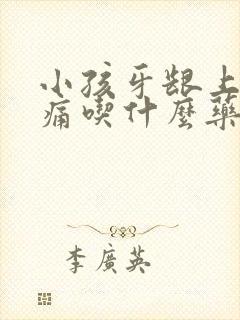 小孩牙龈上
痛喫什麼藥
李廣英